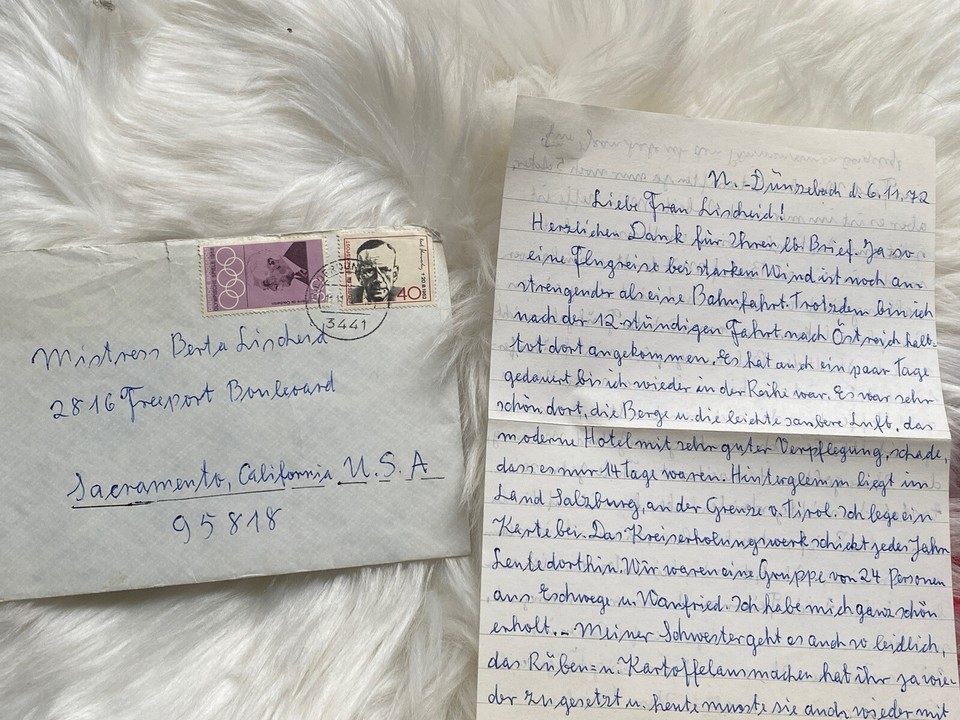 40
3441
Mistress Berta Lischeid
2816 Freeport Boulevard
Sacramento, California U.S.A
95818
N.-Dünzebach d. 6.11.72
Liebe Frau Lischeid!
Herzlichen Dank für Ihren lb. Brief. Ja so
eine Flugreise bei starkem Wind ist noch an-
strengender als eine Bahnfahrt. Trotzdem bin ich
nach der 12-stündigen Fahrt nach Östreich halb-
tot dort angekommen. Es hat auch ein paar Tage
gedauert bis ich wieder in der Reihe war. Es war sehr
schön dort, die Berge u. die leichte saubere Luft, das
moderne Hotel mit sehr guter Verpflegung, schade,
dass es nur 14 Tage waren. Hinterglemm liegt im
Land Salzburg, an der Grenze v. Tirol. Ich lege ein
Karte bei. Das Kreiserholungswerk schickt jedes Jahr
Leute dorthin. Wir waren eine Gruppe von 24 Personen
aus Eschwege u. Wanfried. Ich habe mich ganz schön
erholt. – Meiner Schwester geht es auch so leidlich,
das Rüben= u. Kartoffelausmachen hat ihr ja wie-
der zugesetzt u. heute musste sie auch wieder mit